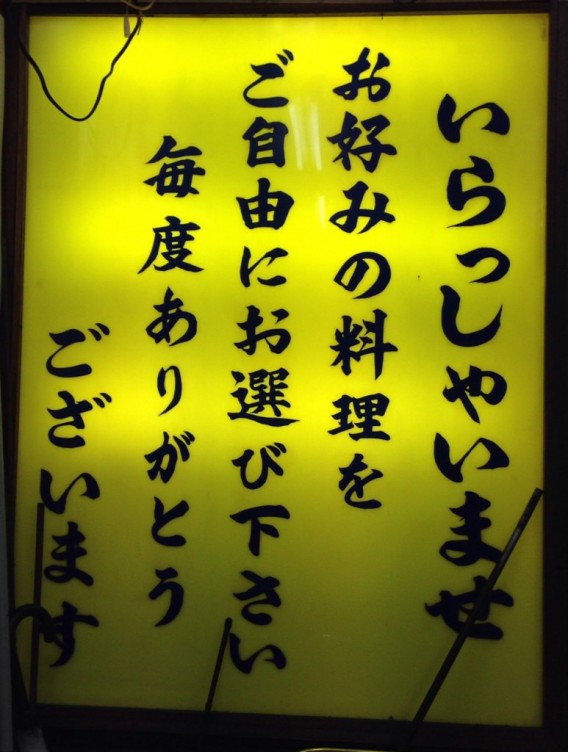 いらっしゃいませ
お好みの料理を
ご自由にお選び下さい
毎度ありがとう
ございます